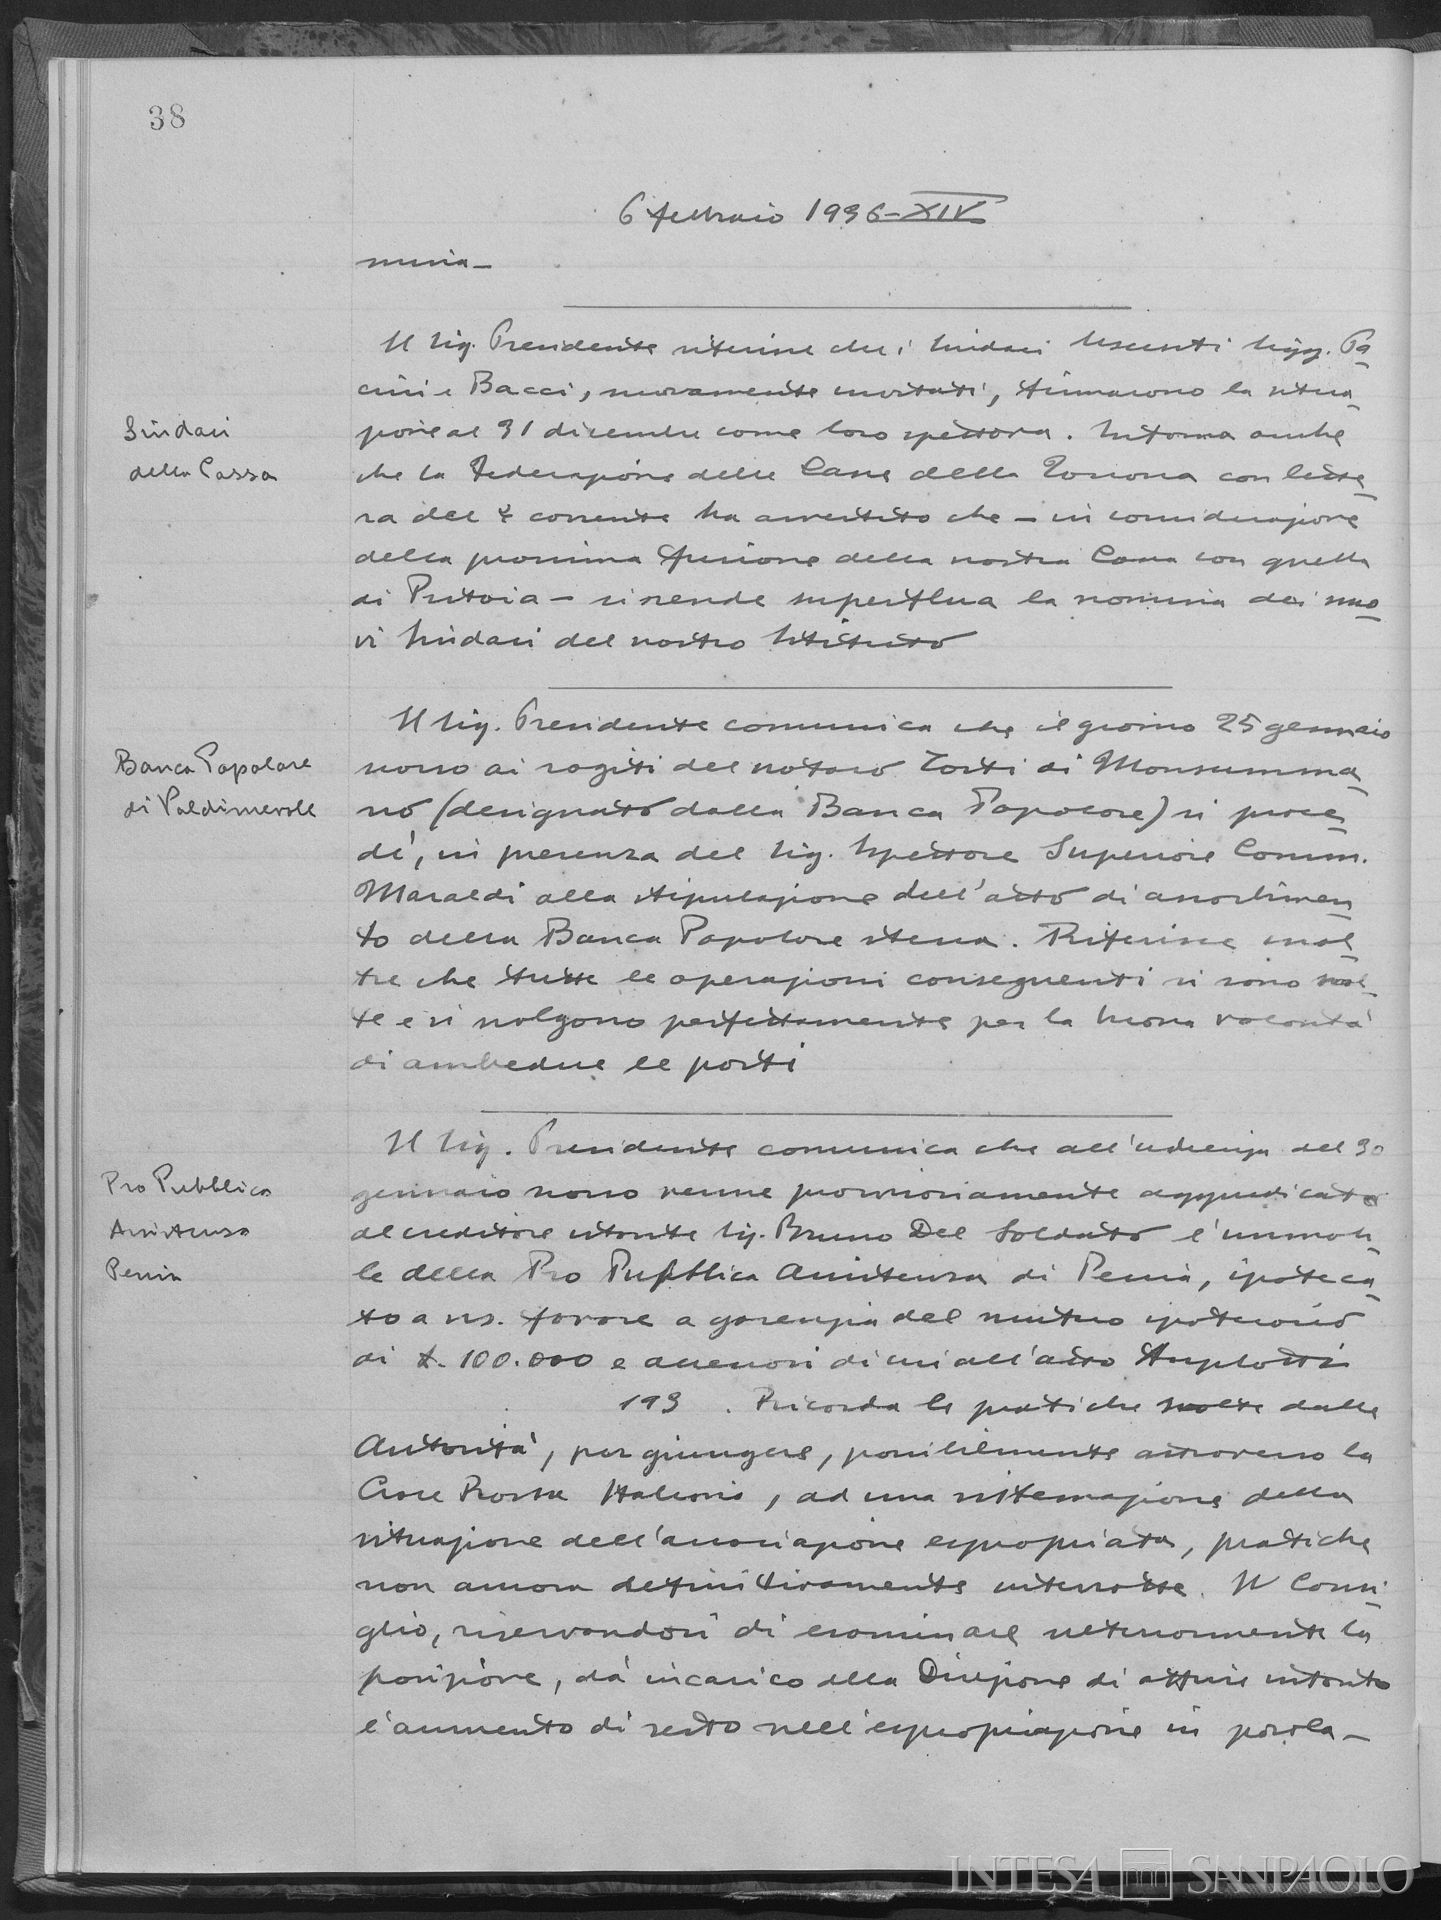 38
6 febbraio 1936-XIV
Il Sig. Presidente riferisce che i Sindaci uscenti Sigg. Pa-
cini e Bacci, nuovamente invitati, firmarono la situa-
zione al 31 dicembre come loro spettava. Informa anche
Sindaci
della Cassa
che la Federazione delle Casse della Toscana con lette-
ra del corrente ha avvertito che - in considerazione
della prossima fusione della nostra Cassa con quella
di Pistoia - si rende superflua la nomina dei nuo-
vi Sindaci del nostro Istituto
Il Sig. Presidente comunica che il giorno 25 gennaio
Banca Popolare
di Valdinievole
scorso ai rogiti del notaro Torti di Monsumma-
no (designato dalla Banca Popolare) si proce-
dé, in presenza del Sig. Ispettore Superiore Comm.
Maraldi alla stipulazione dell'atto di assorbimen-
to della Banca Popolare stessa. Riferisce inol-
tre che tutte le operazioni conseguenti si sono svol-
te e si svolgono perfettamente per la buona volontà
di ambedue le parti
Il Sig. Presidente comunica che all'udienza del 30
Pro Pubblica
Assistenza
Pescia
gennaio scorso venne provvisoriamente aggiudicato
al creditore istante Sig. Bruno Del Soldato l'immobi-
le della Pro Pubblica Assistenza di Pescia, ipoteca-
to a ns. favore a garanzia del mutuo ipotecario
di £. 100.000 e accessori di cui all'atto
193 . Ricorda le pratiche svolte dalle
Autorità, per giungere, possibilmente attraverso la
Croce Rossa Italiana, ad una sistemazione della
situazione dell'associazione espropriata, pratiche
non ancora definitivamente interrotte. Il Consi-
glio, riservandosi di esaminare ulteriormente la
posizione, dà incarico alla Direzione di offrire intanto
l'aumento di sesto nell'espropriazione in parola-
INTESA SANPAOLO